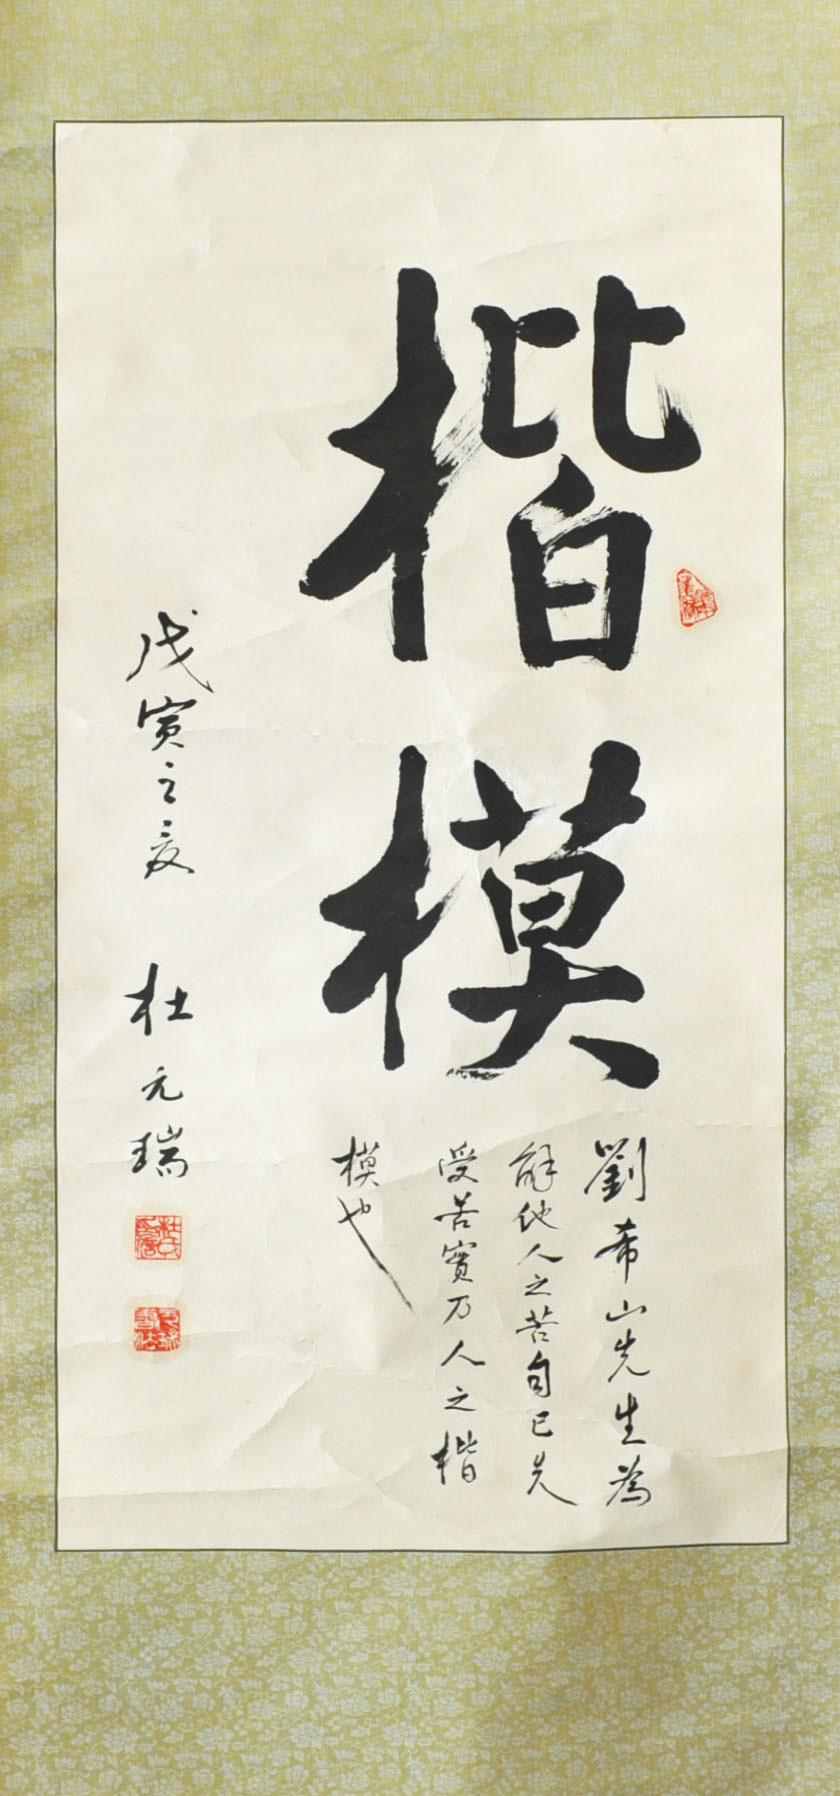 楷模
劉希山先生為
解他人之苦自己先
受苦實乃人之楷
模也
戊寅之夏 杜元瑞